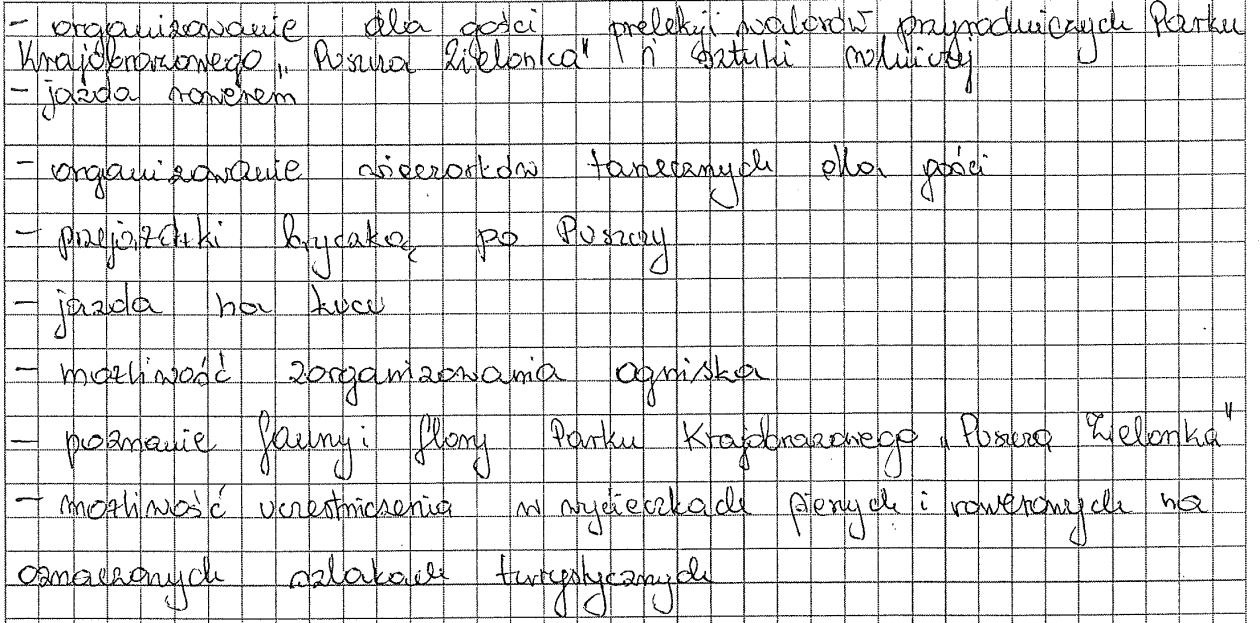 - organizowanie dla gości prelekcji walorów przyrodniczych Parku
Krajobrazowego „Puszcza Zielonka" i sztuki rolniczej
- jazda rowerem
- organizowanie wieczorków tanecznych dla gości
- przejażdżki bryczką po Puszczy
- jazda na kucu
- możliwość zorganizowania ogniska
- poznanie fauny i flory Parku Krajobrazowego „Puszcza Zielonka"
- możliwość uczestniczenia w wycieczkach pieszych i rowerowych na
oznaczonych szlakach turystycznych